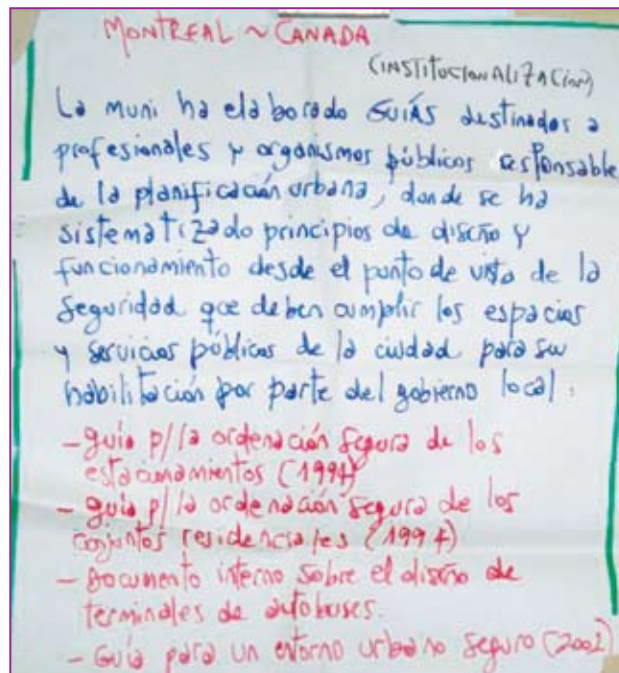 MONTREAL ~ CANADA
(INSTITUCIONALIZACIÓN)
La muni ha elaborado GUÍAS destinados a
profesionales y organismos públicos responsable
de la planificación urbana, donde se ha
sistematizado principios de diseño y
funcionamiento desde el punto de vista de la
seguridad que deben cumplir los espacios
y servicios públicos de la ciudad para su
habilitación por parte del gobierno local:
- guía p/la ordenación segura de los
estacionamientos (1994)
- guía p/la ordenación segura de los
conjuntos residenciales (1994)
- Documento interno sobre el diseño de
terminales de autobuses.
- Guía para un entorno urbano seguro (2002)